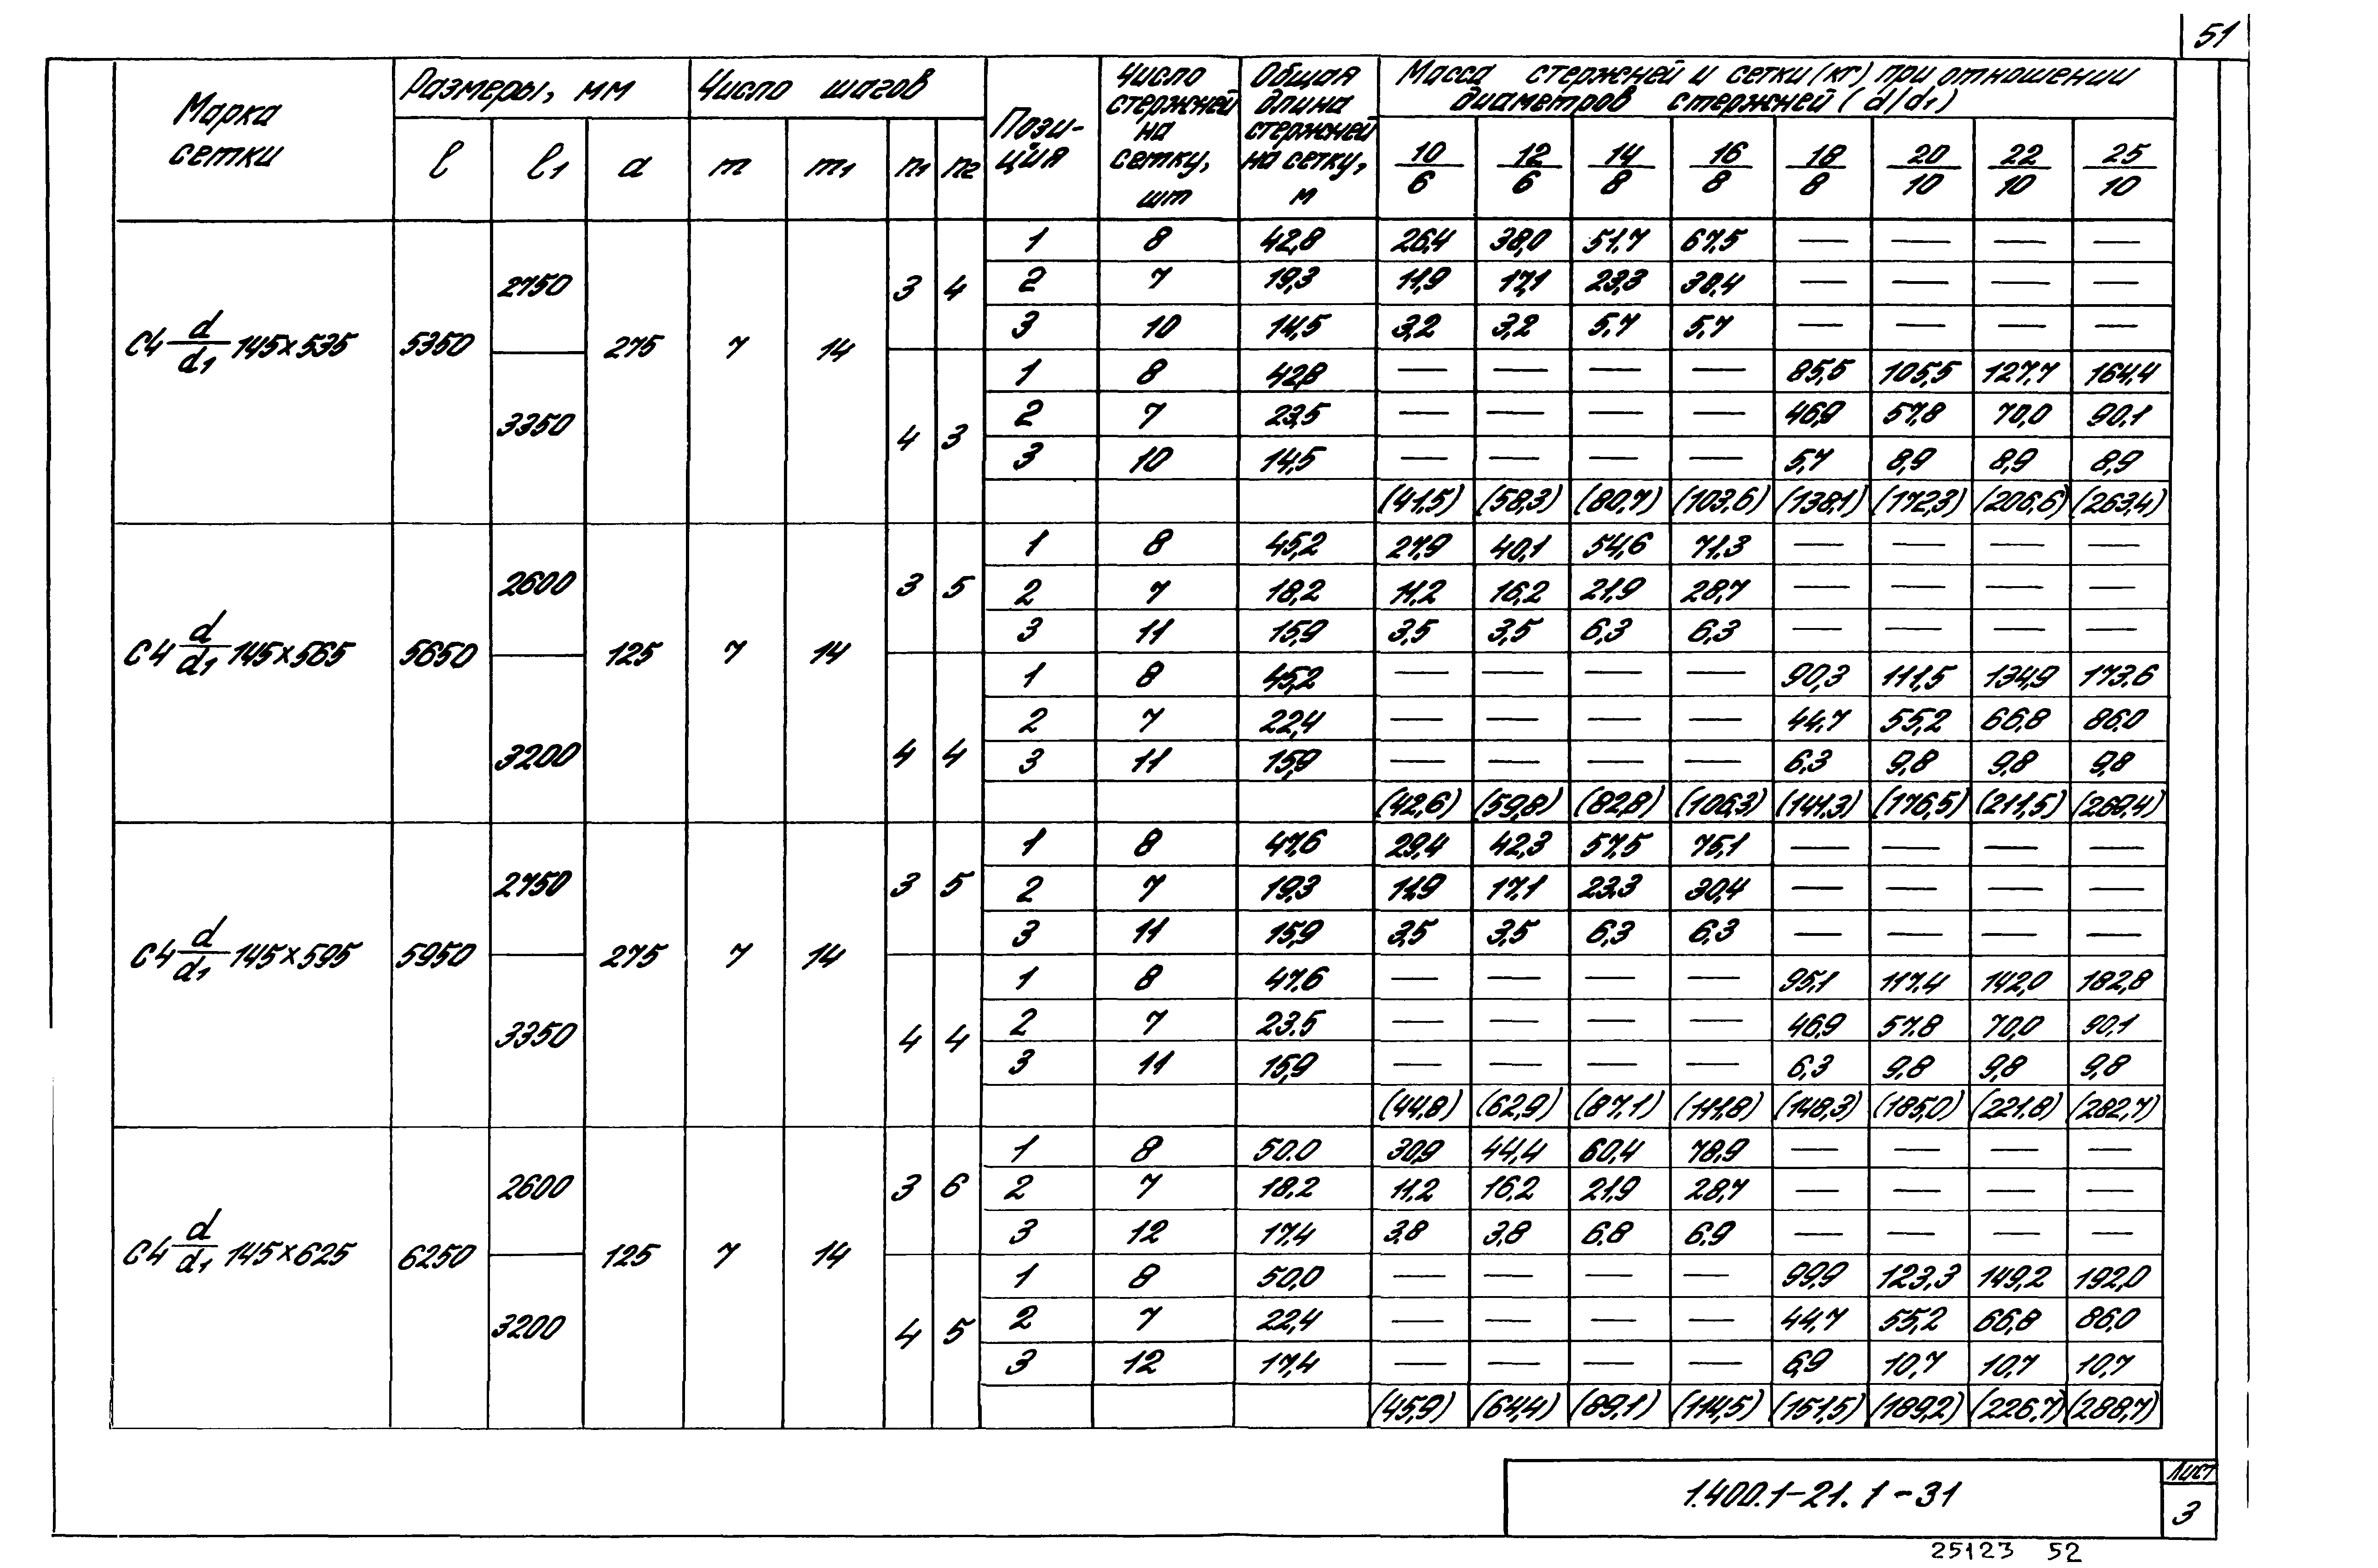 51
Марка сетки | Размеры, мм | Число шагов | Позиция | Число стержней на сетку, шт | Общая длина стержней на сетку, м | Масса стержней и сетки (кг) при отношении диаметров стержней (d/d1)
l | l1 | a | m | m1 | n1 | n2 | 10/6 | 12/6 | 14/8 | 16/8 | 18/8 | 20/10 | 22/10 | 25/10
С4 d/d1 145×535 | 5350 | 2750 | 275 | 7 | 14 | 3 | 4
1 | 8 | 42,8 | 26,4 | 38,0 | 51,7 | 67,5 | — | — | — | —
2 | 7 | 19,3 | 11,9 | 17,1 | 23,3 | 30,4 | — | — | — | —
3 | 10 | 14,5 | 3,2 | 3,2 | 5,7 | 5,7 | — | — | — | —
3350 | 4 | 3
1 | 8 | 42,8 | — | — | — | — | 85,5 | 105,5 | 127,7 | 164,4
2 | 7 | 23,5 | — | — | — | — | 46,9 | 57,8 | 70,0 | 90,1
3 | 10 | 14,5 | — | — | — | — | 5,7 | 8,9 | 8,9 | 8,9
(41,5) | (58,3) | (80,7) | (103,6) | (138,1) | (172,3) | (206,6) | (263,4)
С4 d/d1 145×565 | 5650 | 2600 | 125 | 7 | 14 | 3 | 5
1 | 8 | 45,2 | 27,9 | 40,1 | 54,6 | 71.3 | — | — | — | —
2 | 7 | 18,2 | 11,2 | 16,2 | 21,9 | 28,7 | — | — | — | —
3 | 11 | 15,9 | 3,5 | 3,5 | 6,3 | 6,3 | — | — | — | —
3200 | 4 | 4
1 | 8 | 45,2 | — | — | — | — | 90,3 | 111,5 | 134,9 | 173.6
2 | 7 | 22,4 | — | — | — | — | 44,7 | 55,2 | 66,8 | 86,0
3 | 11 | 15,9 | — | — | — | — | 6,3 | 9,8 | 9,8 | 9,8
(42,6) | (59,8) | (82,8) | (106,3) | (141,3) | (176,5) | (211,5) | (269,4)
С4 d/d1 145×595 | 5950 | 2750 | 275 | 7 | 14 | 3 | 5
1 | 8 | 47,6 | 29,4 | 42,3 | 57,5 | 75,1 | — | — | — | —
2 | 7 | 19,3 | 11,9 | 17.1 | 23.3 | 30,4 | — | — | — | —
3 | 11 | 15,9 | 3,5 | 3,5 | 6,3 | 6,3 | — | — | — | —
3350 | 4 | 4
1 | 8 | 47.6 | — | — | — | — | 95,1 | 117.4 | 142,0 | 182,8
2 | 7 | 23.5 | — | — | — | — | 46,9 | 57.8 | 70,0 | 90.1
3 | 11 | 15,9 | — | — | — | — | 6,3 | 9,8 | 9,8 | 9,8
(44,8) | (62,9) | (87,1) | (111,8) | (148,3) | (185,0) | (221,8) | (282,7)
С4 d/d1 145×625 | 6250 | 2600 | 125 | 7 | 14 | 3 | 6
1 | 8 | 50.0 | 30,9 | 44,4 | 60,4 | 78,9 | — | — | — | —
2 | 7 | 18.2 | 11.2 | 16.2 | 21,9 | 28,7 | — | — | — | —
3 | 12 | 17,4 | 3,8 | 3,8 | 6.8 | 6.9 | — | — | — | —
3200 | 4 | 5
1 | 8 | 50,0 | — | — | — | — | 99,9 | 123,3 | 149,2 | 192,0
2 | 7 | 22,4 | — | — | — | — | 44,7 | 55,2 | 66,8 | 86,0
3 | 12 | 17,4 | — | — | — | — | 6,9 | 10,7 | 10,7 | 10,7
(45,9) | (64,4) | (89,1) | (114,5) | (151,5) | (189,2) | (226,7) | (288,7)
1.400.1-21.1-31
Лист
3
25123 52